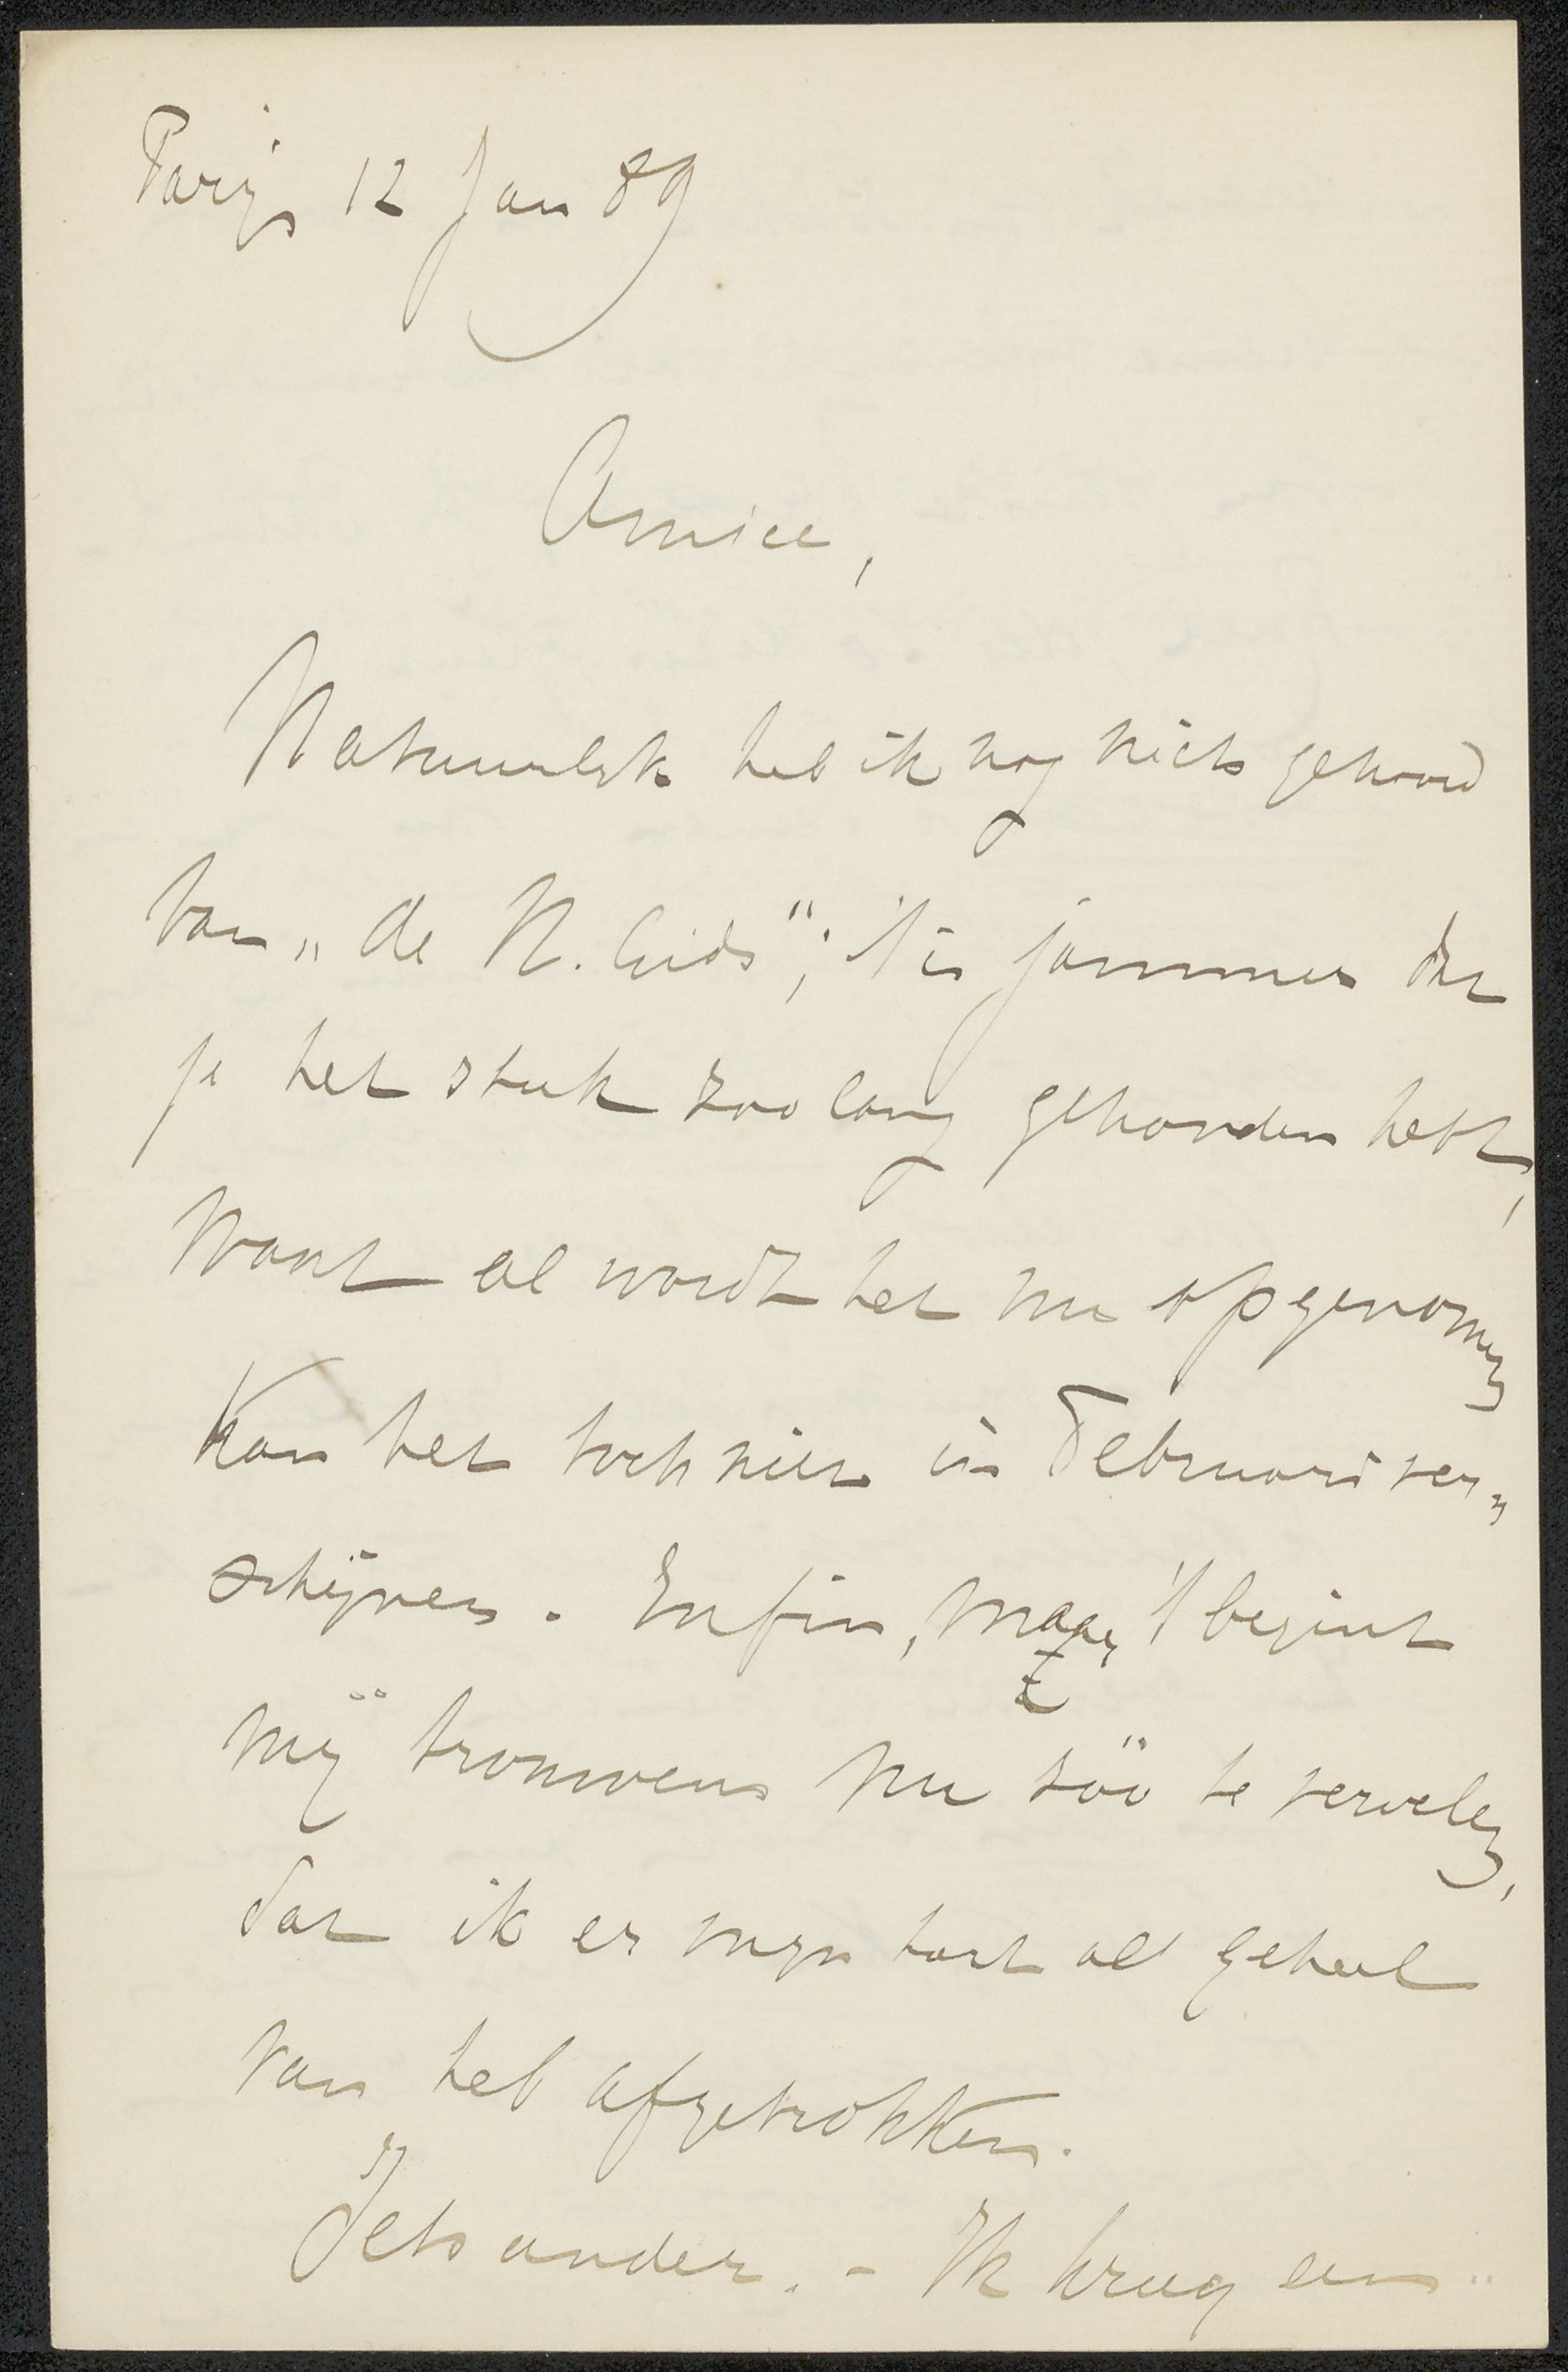 Parijs 12 Jan 89
Amice,
Natuurlijk heb ik nog niets gehoord
van „de N. Gids"; 't is jammer dat
je het stuk zoo lang gehouden hebt,
Want al wordt het nu opgenomen
kan het toch niet in Februari ver„
schijnen. Enfin, maar 't begint
mij trouwens nu zóó te vervelen,
dat ik er mijn hart al geheel
van heb afgetrokken.
Iets anders. - Ik kreeg een